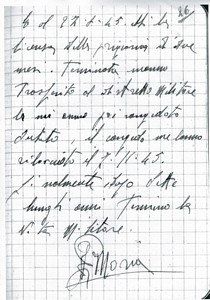 26
5 al 27.6.45. Mi la
licenza della prigionia di due
mesi. Terminata
Trasferito al distretto Militare
la mi anno poi congedato
subito il congedo me lanno
rilasciato il 7.11.45
Finalmente dopo sette
lunghi anni Termino la
Vita Militare.
Moria